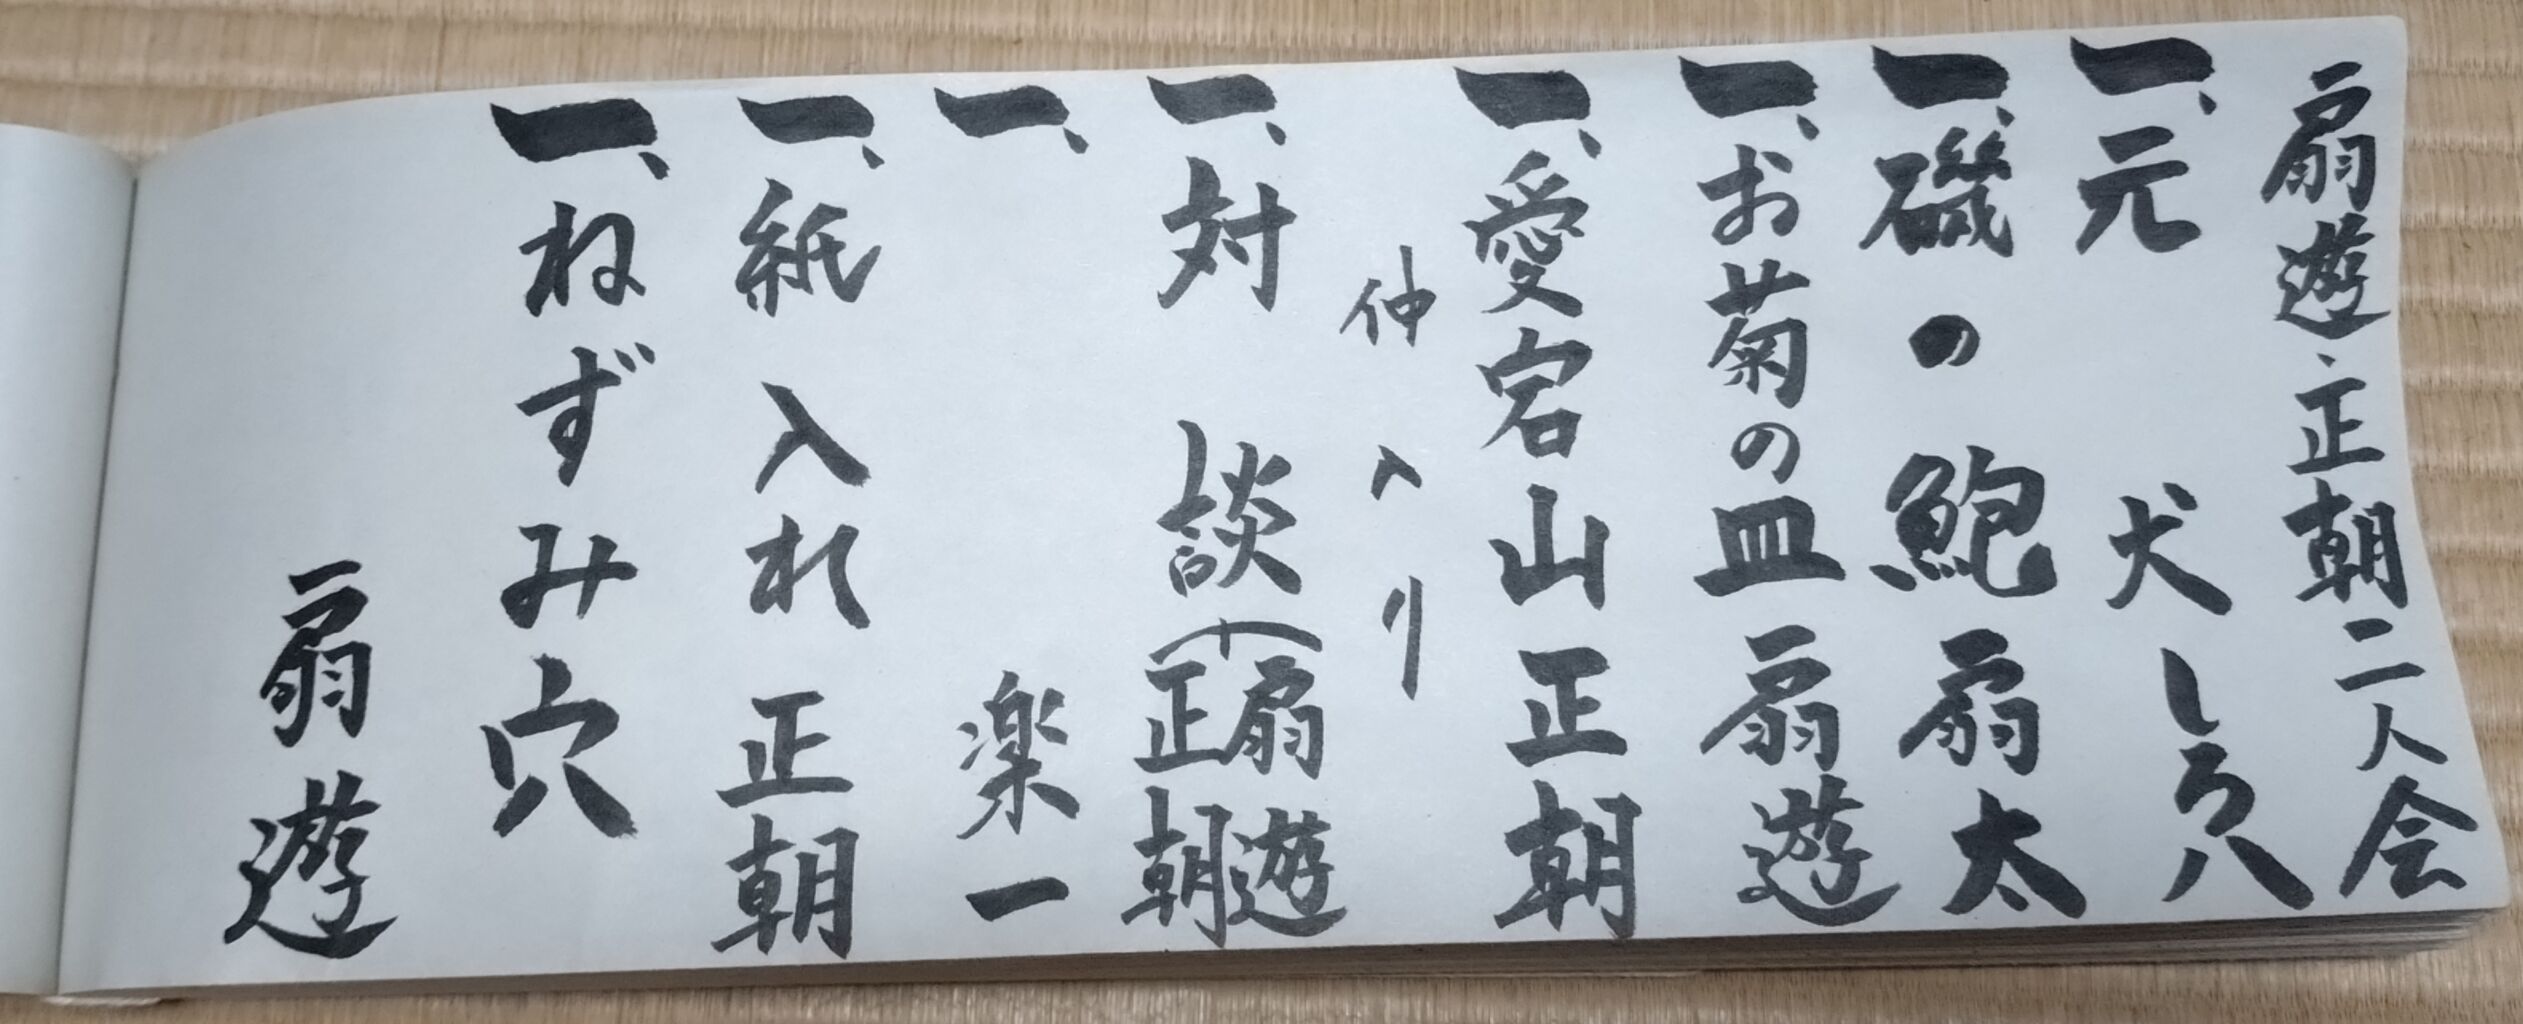 扇遊・正朝二人会
一、元犬 しろ八
一、磯の鮑 扇太
一、お菊の皿 扇遊
一、愛宕山 正朝
仲入り
一、対談(扇遊
正朝
一、 楽一
一、紙入れ 正朝
一、ねずみ穴
扇遊